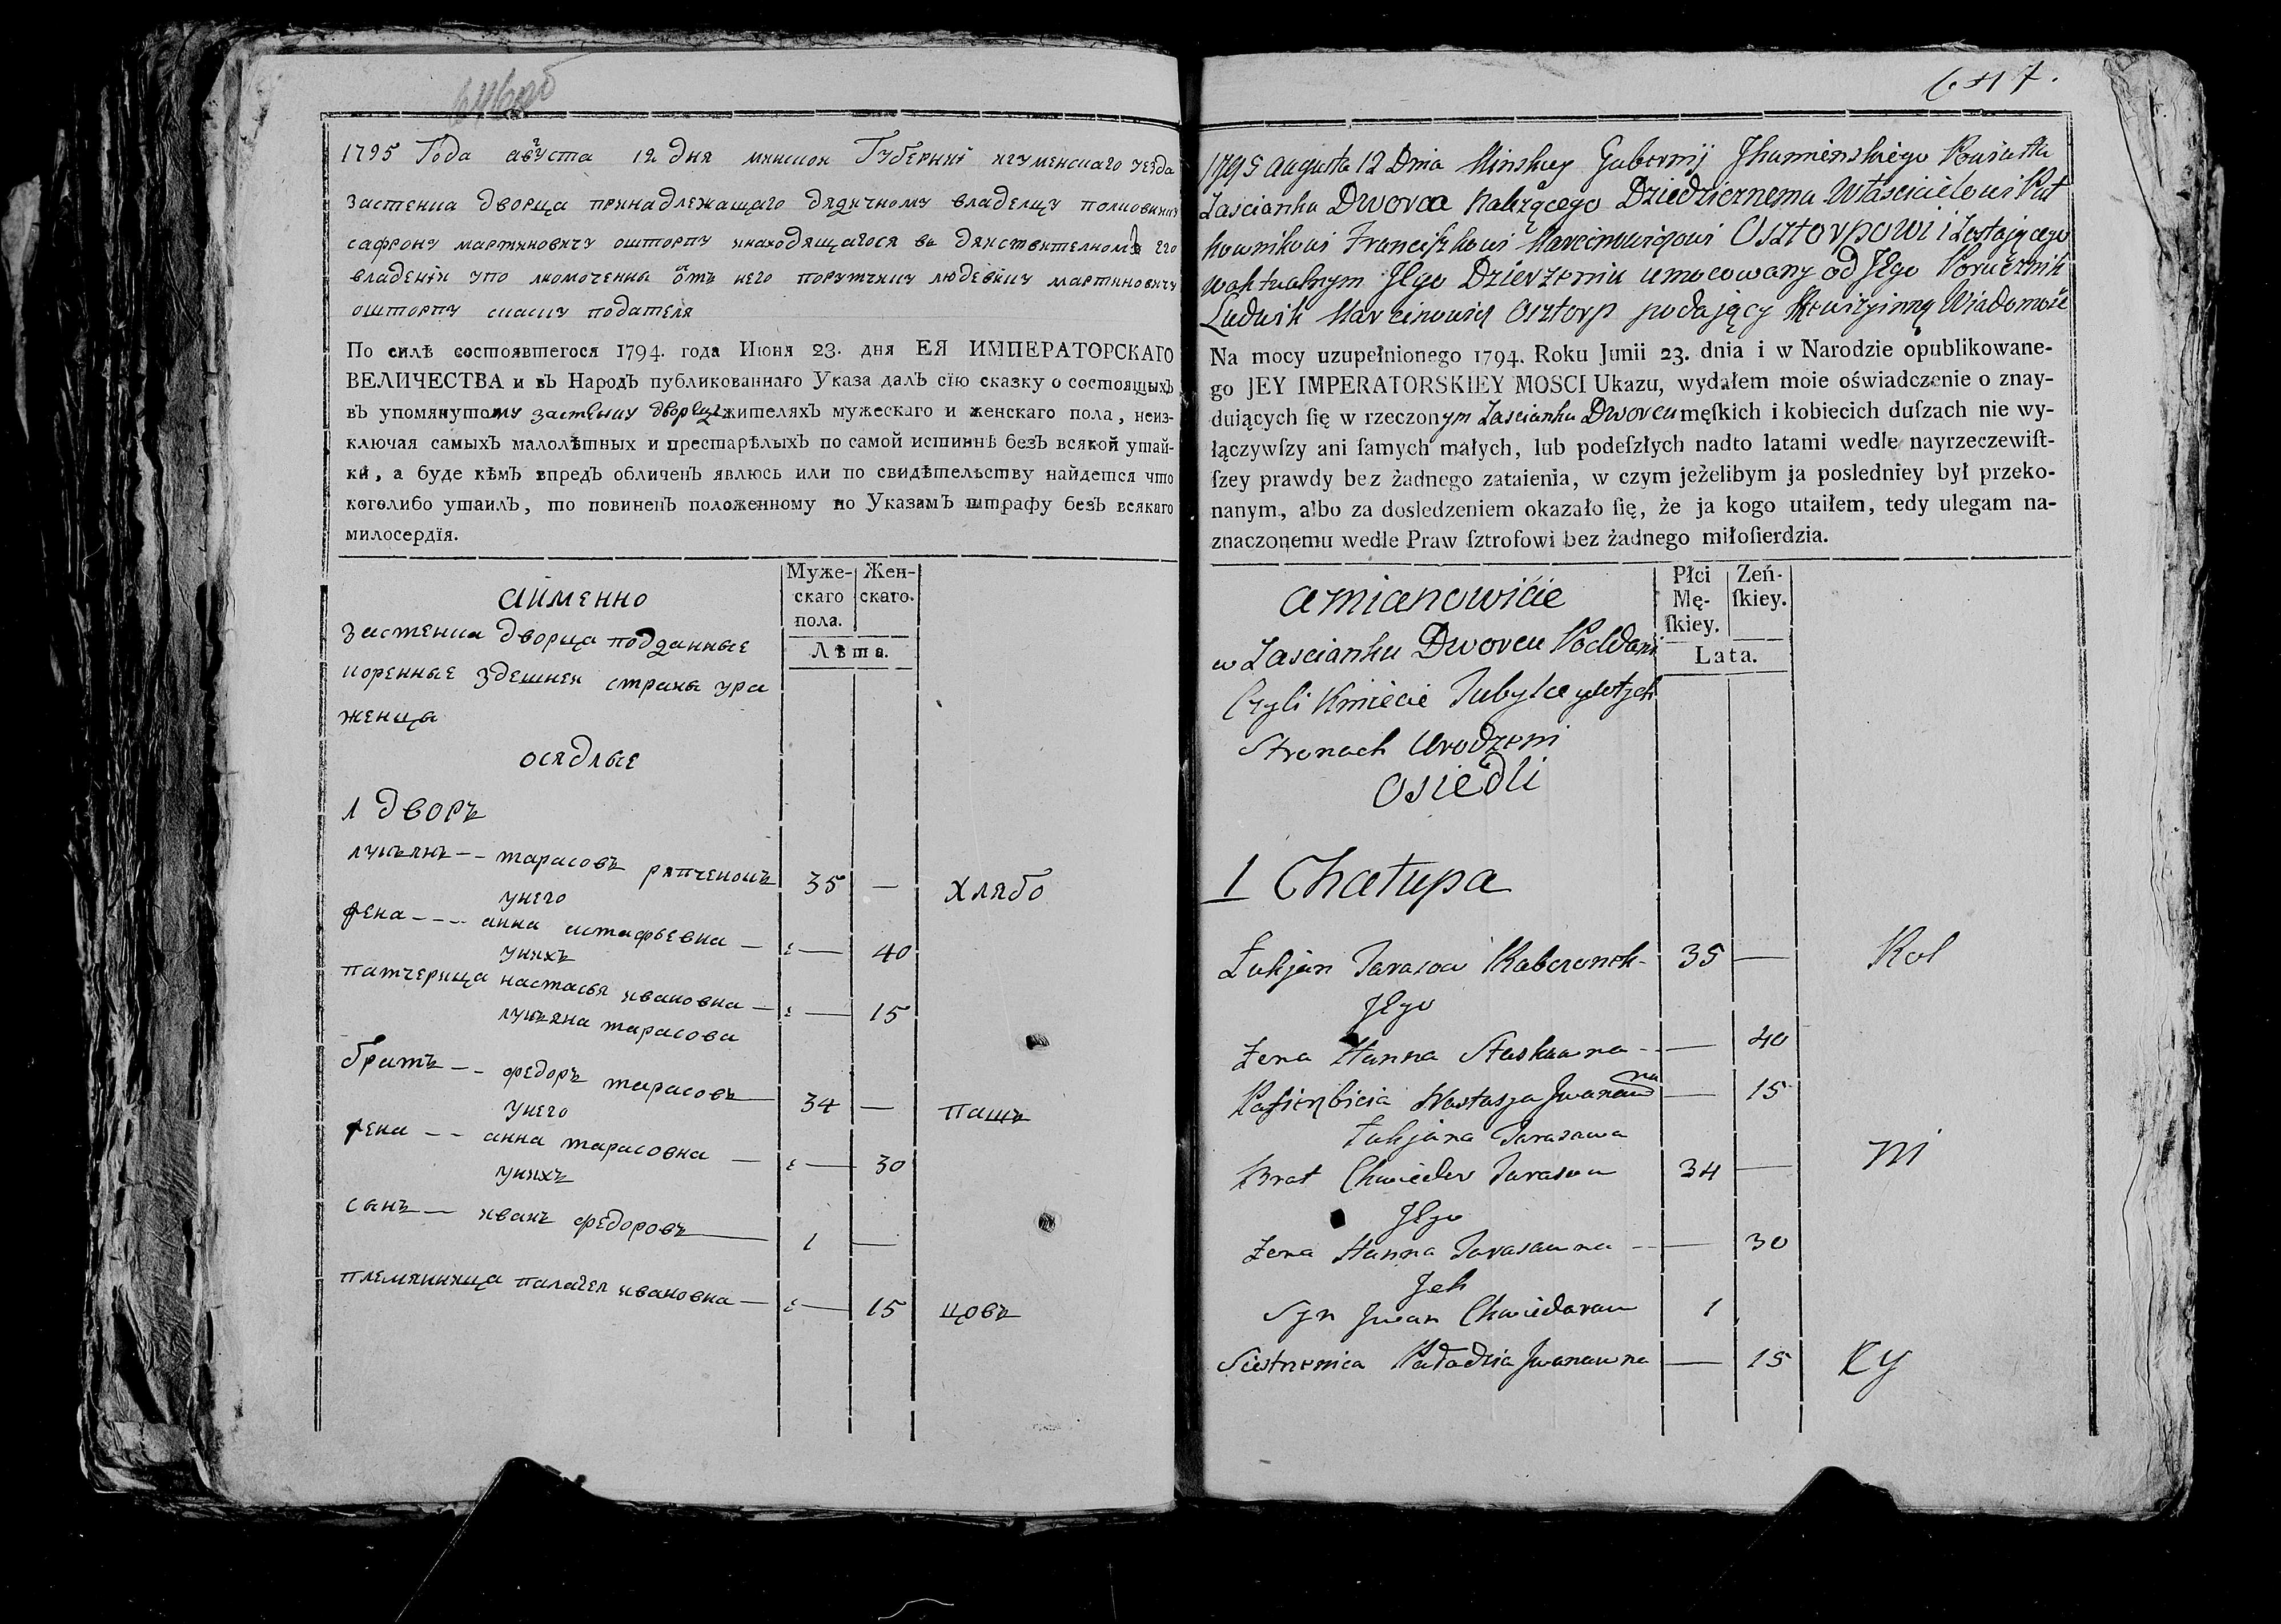 1795 Года августа 12 дня минской Губерниі игуменскаго уезда
застенка дворца принадлежащаго дядичному владелцу полковнику
мартиновичу ошторпу инаходящагося въ дяиствителномъ его
владениі упо лномоченны отъ него поручикъ людевикъ мартиновичъ
ошторпъ подателя
По силѣ состоявшегося 1794. года Июня 23. дня ЕЯ ИМПЕРАТОРСКАГО
ВЕЛИЧЕСТВА и въ Народъ публикованнаго Указа далъ сію сказку о состоящыхъ
въ упомянутому застенку дворцу жителяхъ мужескаго и женскаго пола, неиз-
ключая самыхъ малолѣтныхъ и престарѣлыхъ по самой истиннѣ безъ всякой утай-
ки, а буде кѣмъ впредъ обличенъ явлюсь или по свидѣтельству найдется что
коголибо утаилъ, то повиненъ положенному по Указамъ штрафу безъ всякаго
милосердїя.
Муже-
скаго
пола.
Жен-
скаго.
Лѣта.
аименно
застенка дворца подданные
коренные здешнея страны ура
женца
осядлые
1 дворъ
лукьянъ -- тарасовъ 35 — хлябо
унего
жена ---- анна астафьевна — 40
унихъ
патчерица настасья ивановна — 15
лукьяна тарасова
братъ -- федоръ тарасовъ 34 — пашъ
унего
жена -- анна тарасовна — 30
унихъ
сынъ — иванъ федоровъ 1 —
племянница палагея ивановна — 15 цовъ
1795 augusta 12 Dnia Minskey Gubernij Jhumienskiego Powiatta
Zascianku Dworca Należącego Dziedzicznemu Włascicielowi Puł
kownikowi Franciszkowi Marcinowiczowi Osztorpowi i Zostającego
waktualnym Jego Dzierżeniu umocowany od Jego Porucznik
Ludwik Marcinowicz Osztorp podający Rewizyinną Wiadomość
Na mocy uzupełnionego 1794. Roku Junii 23. dnia i w Narodzie opublikowane-
go JEY IMPERATORSKIEY MOSCI Ukazu, wydałem moie oświadczenie o znay-
duiących ſię w rzeczonym Zascianku Dworcu męſkich i kobiecich duſzach nie wy-
łączywſzy ani ſamych małych, lub podeſzłych nadto latami wedle nayrzeczewiſt-
ſzey prawdy bez żadnego zataienia, w czym jeżelibym ja posledniey był przeko-
nanym, albo za dosledzeniem okazało ſię, że ja kogo utaiłem, tedy ulegam na-
znaczonemu wedle Praw ſztrofowi bez żadnego miłoſierdzia.
Płci
Mę-
ſkiey.
Zeń-
ſkiey.
Lata.
amianowićie
w Zascianku Dworcu Poddani
Czyli Kmiécie Tubylce ywtych
Stronach Urodzeni
Osiedli
1 Chałupa
Łukjan Tarasow 35 — Rol
Jego
Żena Hanna Staskawna — 40
Pasierbicia Nastasya Jwanawna — 15
Łukjana Tarasawa
Brat Chwieder Tarasau 34 — ni
Jego
Żena Hanna Tarasauna — 30
Jch
Syn Jwan Chwiedarau 1
Siestrzenica Paładzia Jwanauna — 15 Ky